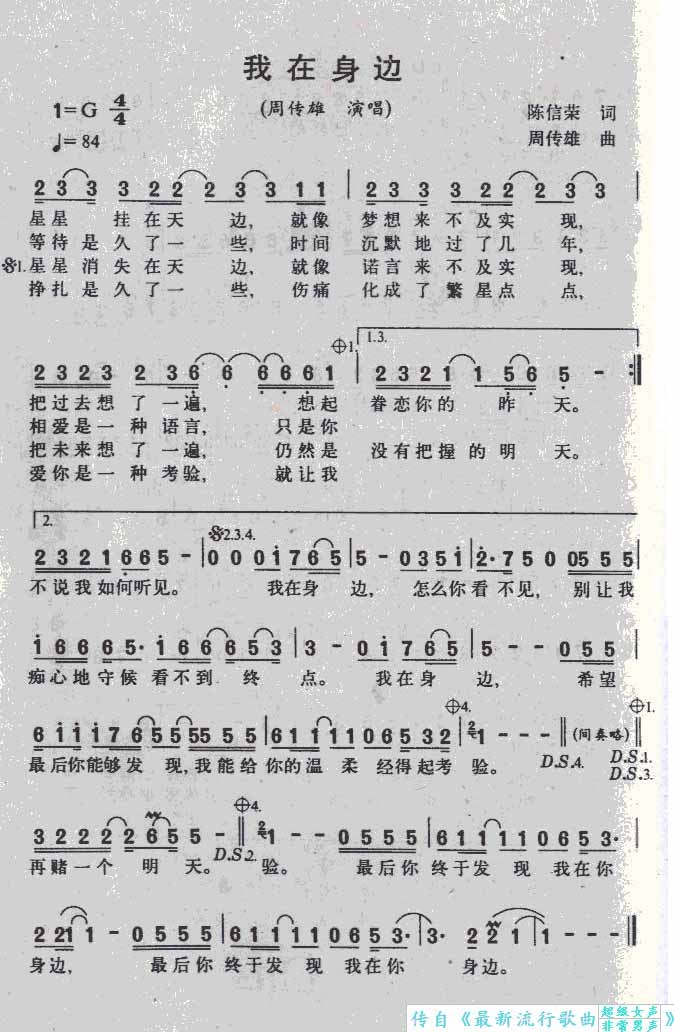 我在身边
1=G 4/4 (周传雄 演唱) 陈信荣 词
♩=84 周传雄 曲
2 3 3 3 2 2 2 3 3 1 1 | 2 3 3 3 2 2 2 2 3 3
星星 挂在天 边, 就像 梦想来不及实 现,
等待是久了一 些, 时间 沉默地过了几 年,
1.星星消失在天 边, 就像 诺言来不及实 现,
挣扎是久了一 些, 伤痛 化成了繁星点 点,
1. 1.3.
2 3 2 3 2 3 6 6 6 6 6 6 1 | 2 3 2 1 1 5 6 5 - :||
把过去想了一遍, 想起 眷恋你的 昨 天。
相爱是一种语言, 只是你
把未来想了一遍, 仍然是 没有把握的明天。
爱你是一种考验, 就让我
2. 2.3.4.
2 3 2 1 6 6 5 - | 0 0 0 1 7 6 5 | 5 - 0 3 5 1 | 2· 7 5 0 0 5 5 5
不说我如何听见。 我在身 边, 怎么你看不见, 别让我
1 6 6 6 5· 1 6 6 6 5 3 | 3 - 0 1 7 6 5 | 5 - - 0 5 5
痴心地守候 看不到 终 点。 我在身 边, 希望
4. 1.
6 1 1 1 7 6 5 5 5 5 5 | 6 1 1 1 1 1 0 6 5 3 2 | 2 1 - - || (间奏略) ||
最后你能够发 现,我能给你的温柔 经得起考 验。 D.S.4. D.S.1.
D.S.3.
4.
3 2 2 2 2 2 6 5 5 5 - || 2 1 - - 0 5 5 5 | 6 1 1 1 1 1 0 6 5 3·
再赌一个 明 天。D.S.2. 验。 最后你 终于发 现 我在你
2 2 1 1 - 0 5 5 5 | 6 1 1 1 1 1 0 6 5 3· | 3· 2 2 1 1 - - ||
身边, 最后你 终于发 现 我在你 身边。
传自《最新流行歌曲 超级女声 非常男声》